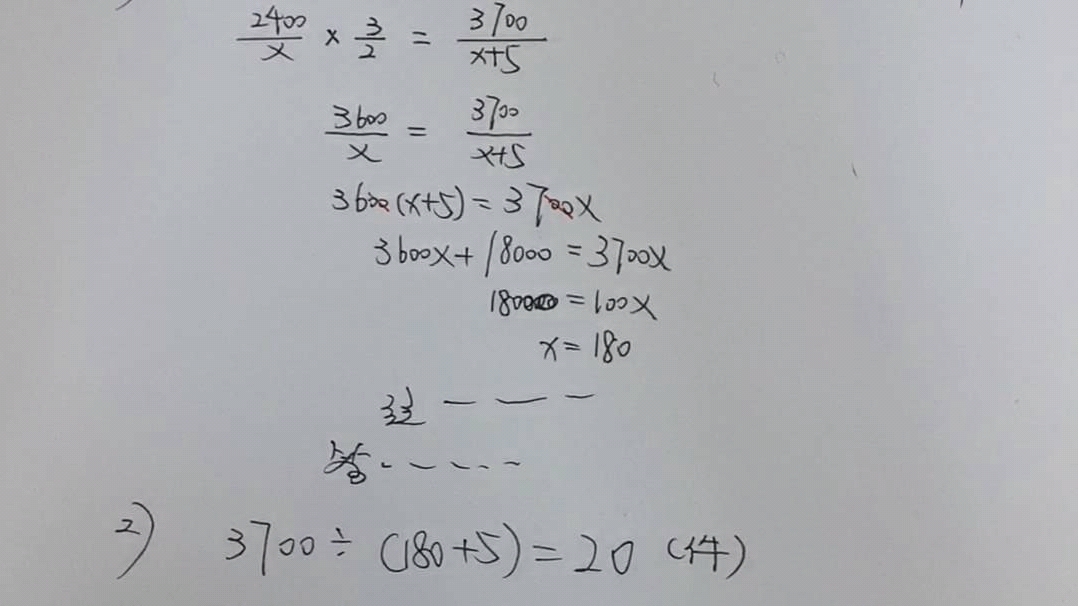 2400/x × 3/2 = 3700/x+5
3600/x = 3700/x+5
3600(x+5)=3700x
3600x+18000=3700x
18000=100x
x=180
答
2) 3700÷(180+5)=20(件)